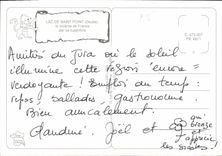 LAC DE SAINT POINT (Doubs)
le troisième de France
par sa superficie
Amitiés du Jura où le soleil
illumine cette région "encore"
verdoyante ! Emploi du temps :
repos, ballades, gastronomie
Bien amicalement.
Claudine, Joël et
qui
bronze
et
apprécie
les siestes